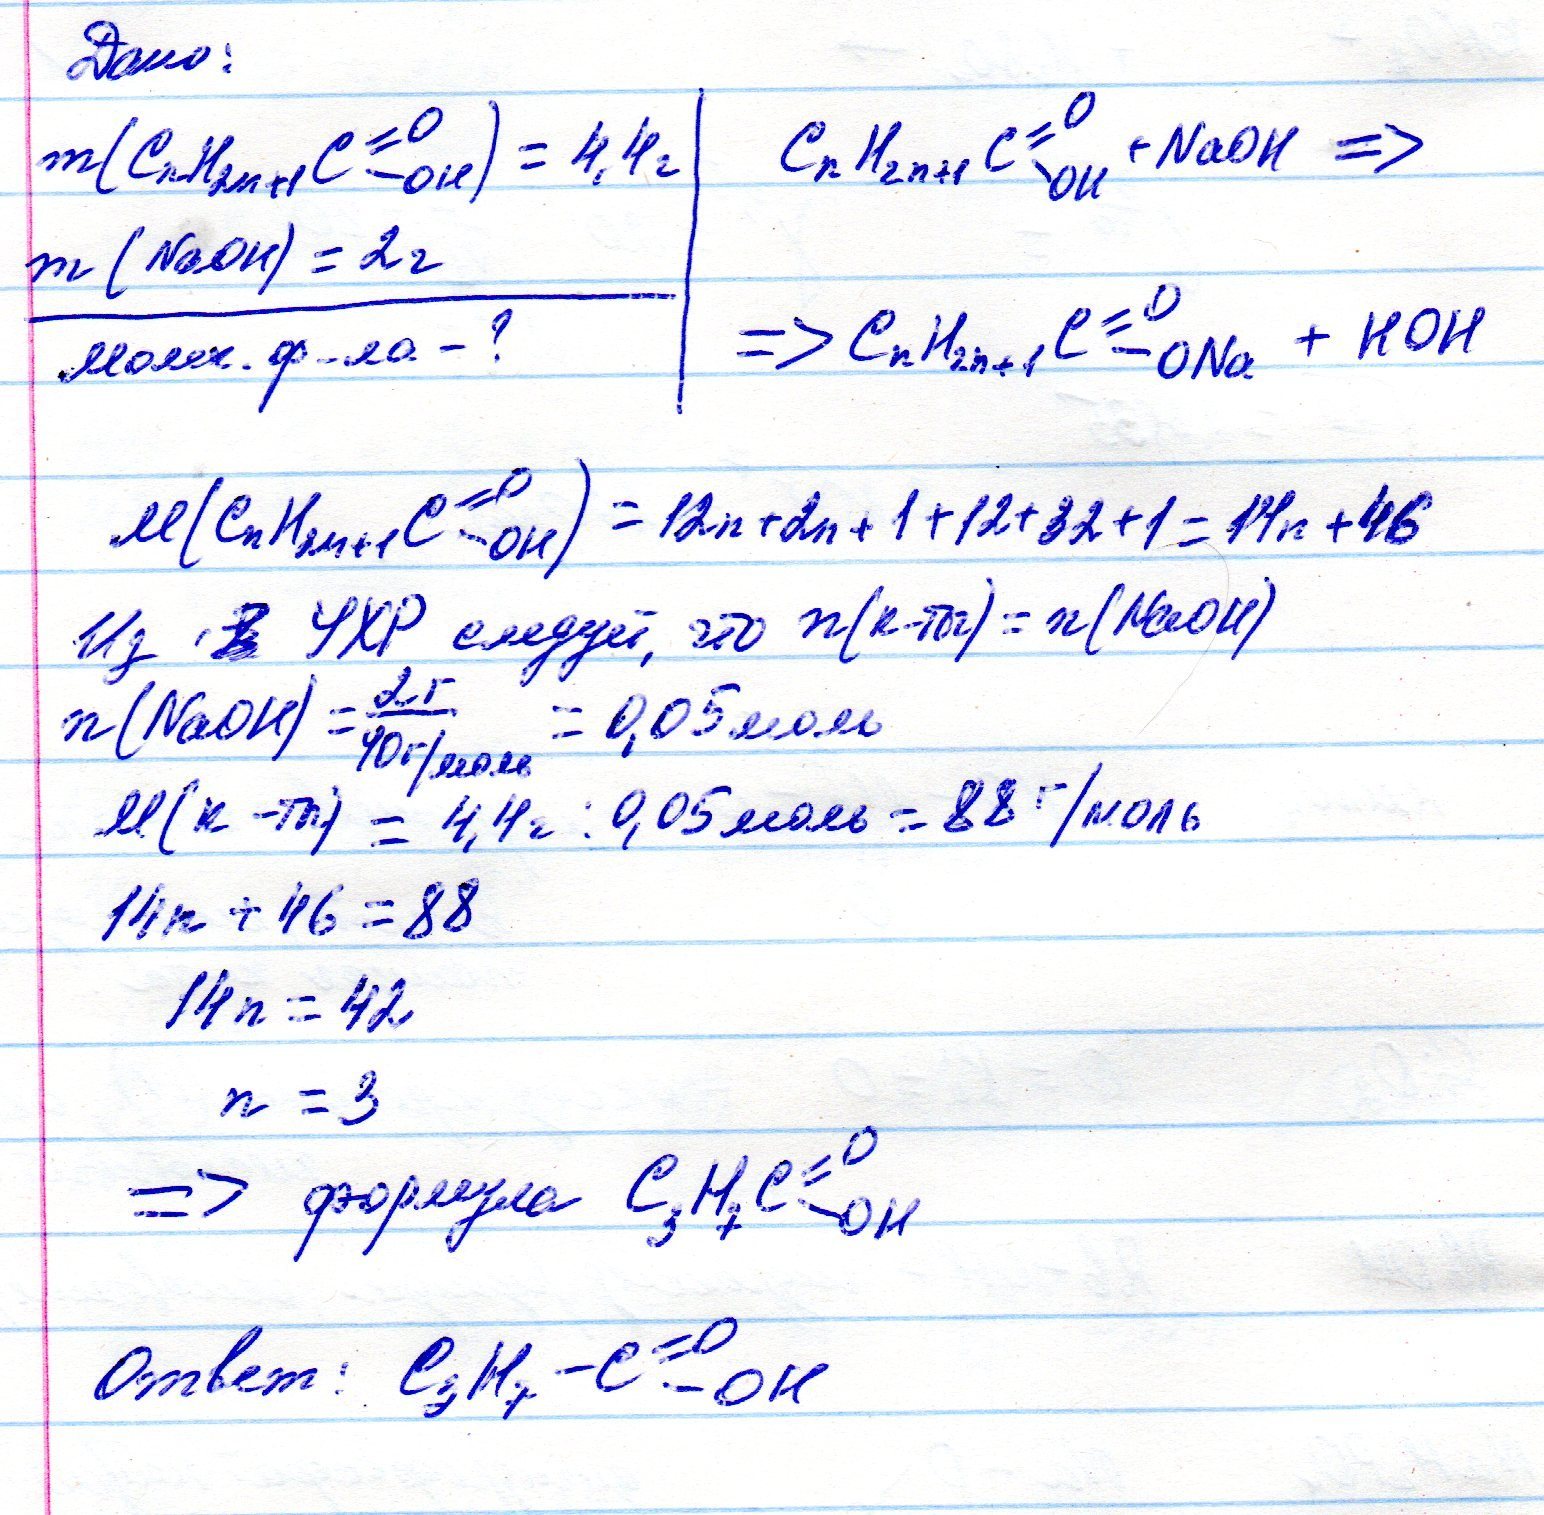 Дано:
m(CnH2n+1C=O-OH) = 4,4г
m(NaOH) = 2г
молек. ф-ла - ?
CnH2n+1C=O-OH + NaOH =>
=> CnH2n+1C=O-ONa + HOH
M(CnH2n+1C=O-OH) = 12n+2n+1+12+32+1=14n+46
Из УХР следует, что n(к-ты) = n(NaOH)
n(NaOH) = 2г/40г/моль = 0,05моль
M(к-ты) = 4,4г : 0,05моль = 88 г/моль
14n + 46 = 88
14n = 42
n = 3
=> формула C3H7C=O-OH
Ответ: C3H7-C=O-OH